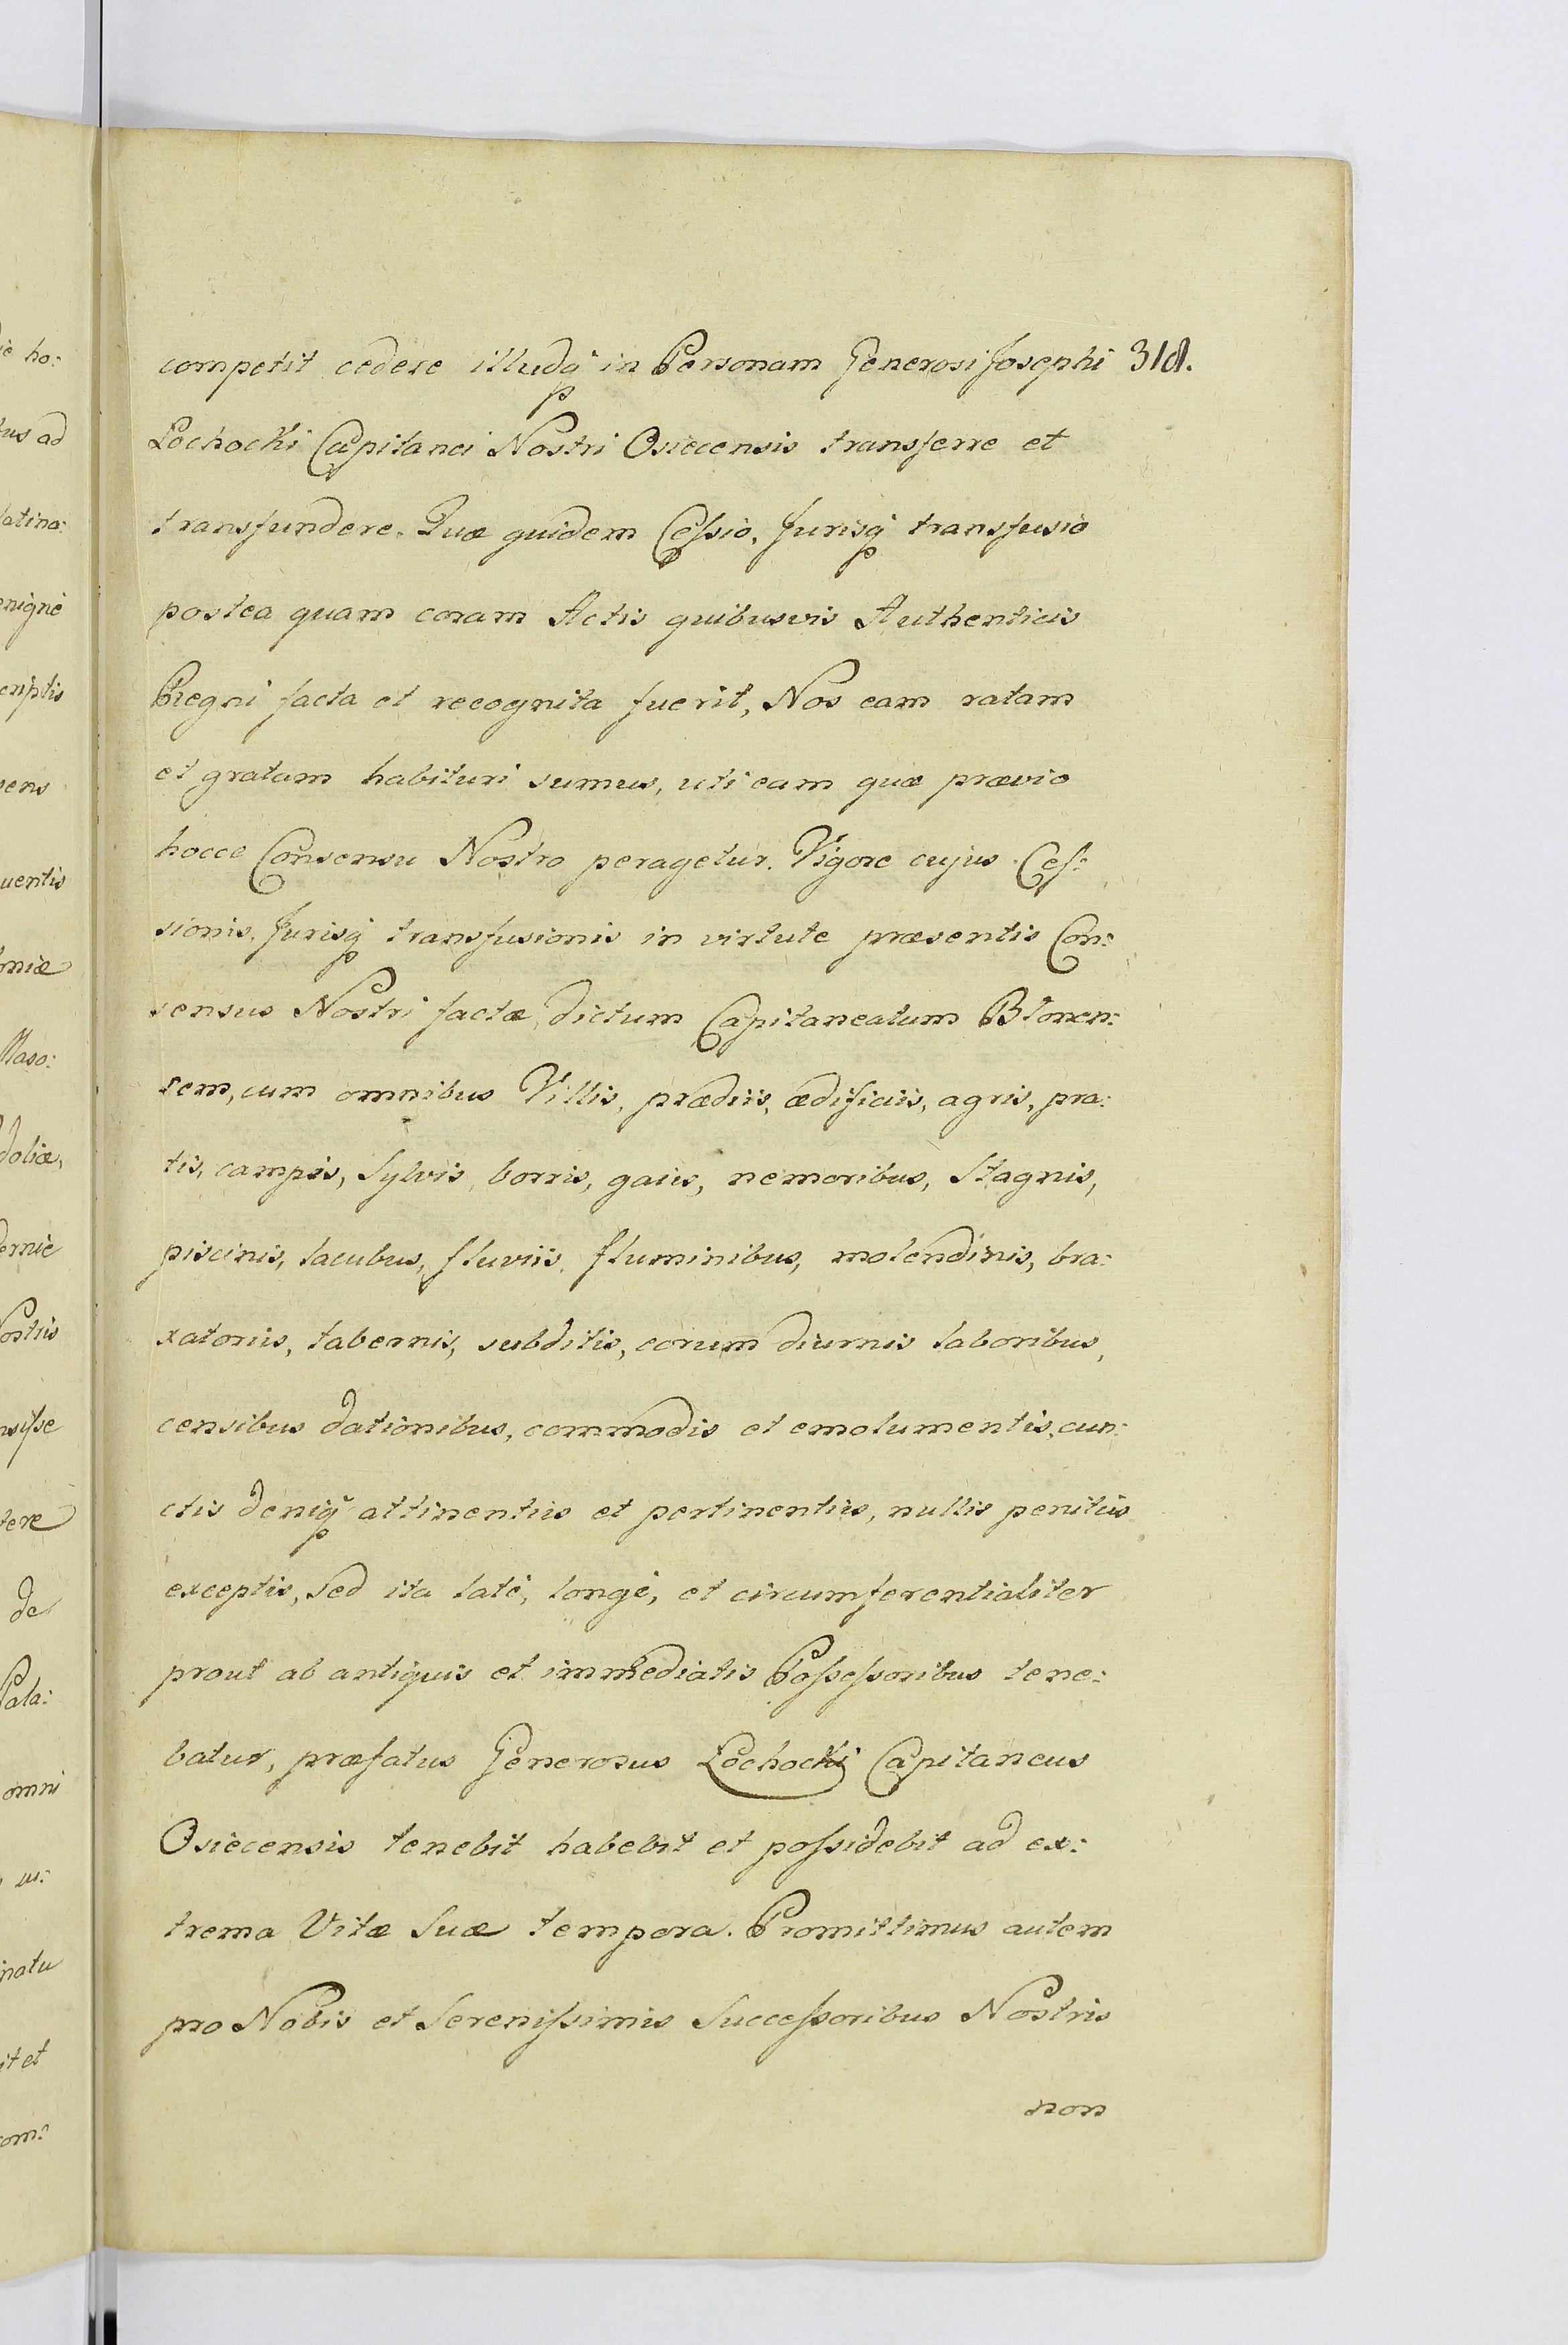 competit cedere illudq́ in Personam Generosi Josephi 318.
Łochocki Capitanei Nostri Osiecensis transferre et
transfundere. Quæ quidem Ceſsio, Jurisq́ transfusio
postea quam coram Actis quibusvis Authenticis
Regni facta et recognita fuerit, Nos eam ratam
et gratam habituri sumus, uti eam quæ prævio
hocce Consensu Nostro peragetur. Vigore cujus Ceſ:
sionis, Jurisq́ transfusionis in virtute præsentis Con:
sensus Nostri factæ, dictum Capitaneatum Blonen:
sem, cum omnibus Villis, prædiis, ædificiis, agris, pra:
tis, campis, Sylvis, borris, gaiis, nemoribus, Stagnis,
piscinis, lacubus, fluviis, fluminibus, molendinis, bra:
xatoriis, tabernis, subditis, eorum diurnis laboribus,
censibus dationibus, commodis et emolumentis, cun:
ctis deniq́ attinentiis et pertinentiis, nullis penitùs
exceptis, Sed ita latè, longè, et circumferentialiter
prout ab antiquis et immediatis Poſseſsoribus tene:
batur, præfatus Generosus Łochocki Capitaneus
Osiecensis tenebit habebit et poſsidebit ad ex:
trema Vitæ Suæ tempora. Promittimus autem
pro Nobis et Sereniſsimis Succeſsoribus Nostris
non